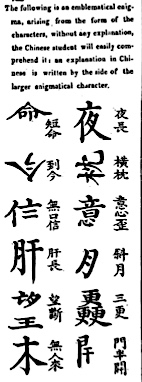 The following is an emblematical enig-
ma, arising from the form of the
characters, without any explanation,
the Chinese student will easily com-
prehend it: an explanation in Chi-
nese is written by the side of the
larger enigmatical character.
夜 夜長
橫枕
意 意心歪
月 斜月
三更
門半開
命 短命
今 到今
無口信
肝 肝長
望 望斷
木 無人來